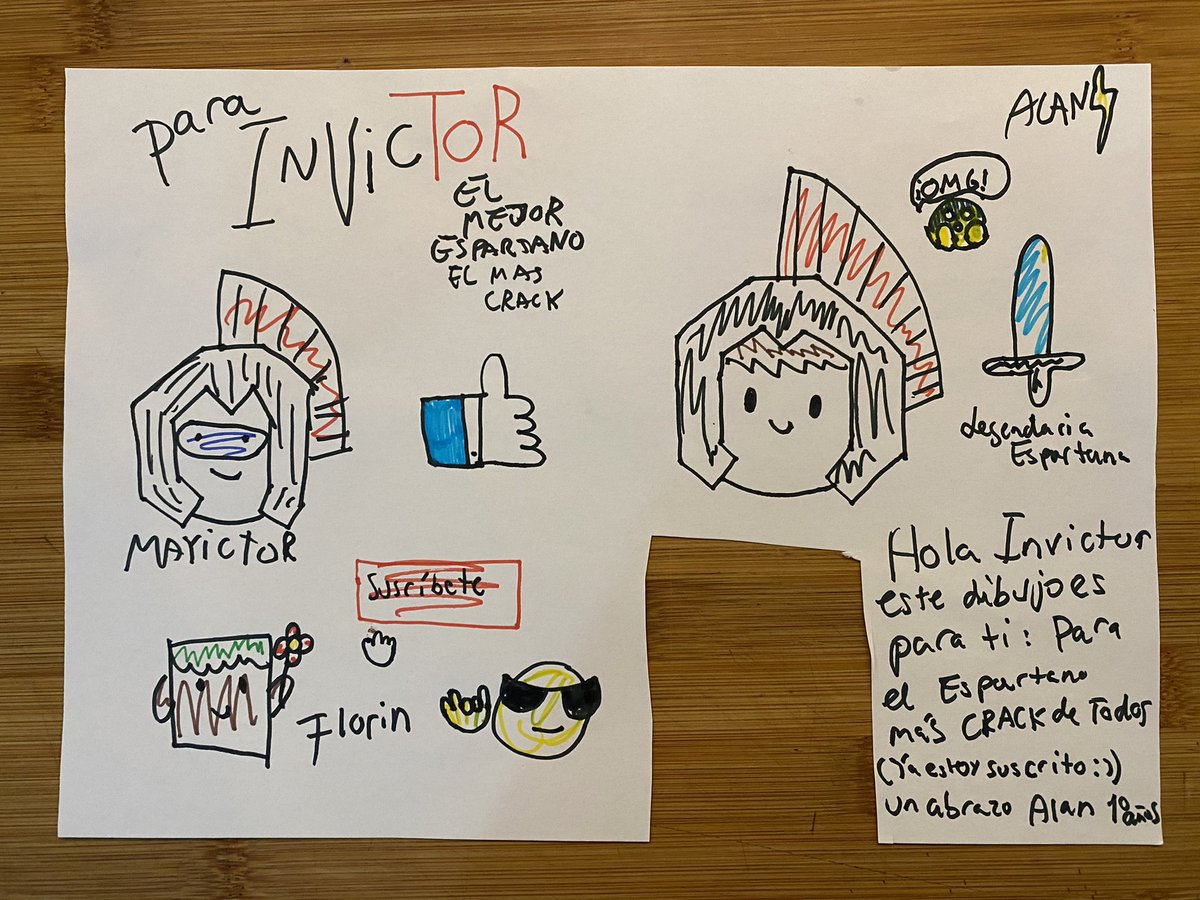 Para
INVICTOR
EL
MEJOR
ESPARTANO
EL MAS
CRACK
MAYICTOR
Suscríbete
Florin
ALAN
¡OMG!
Legendaria
Espartana
Hola Invictor
este dibujo es
para ti: Para
el Espartano
más CRACK de Todos
(Ya estoy suscrito:))
un abrazo Alan 10 años